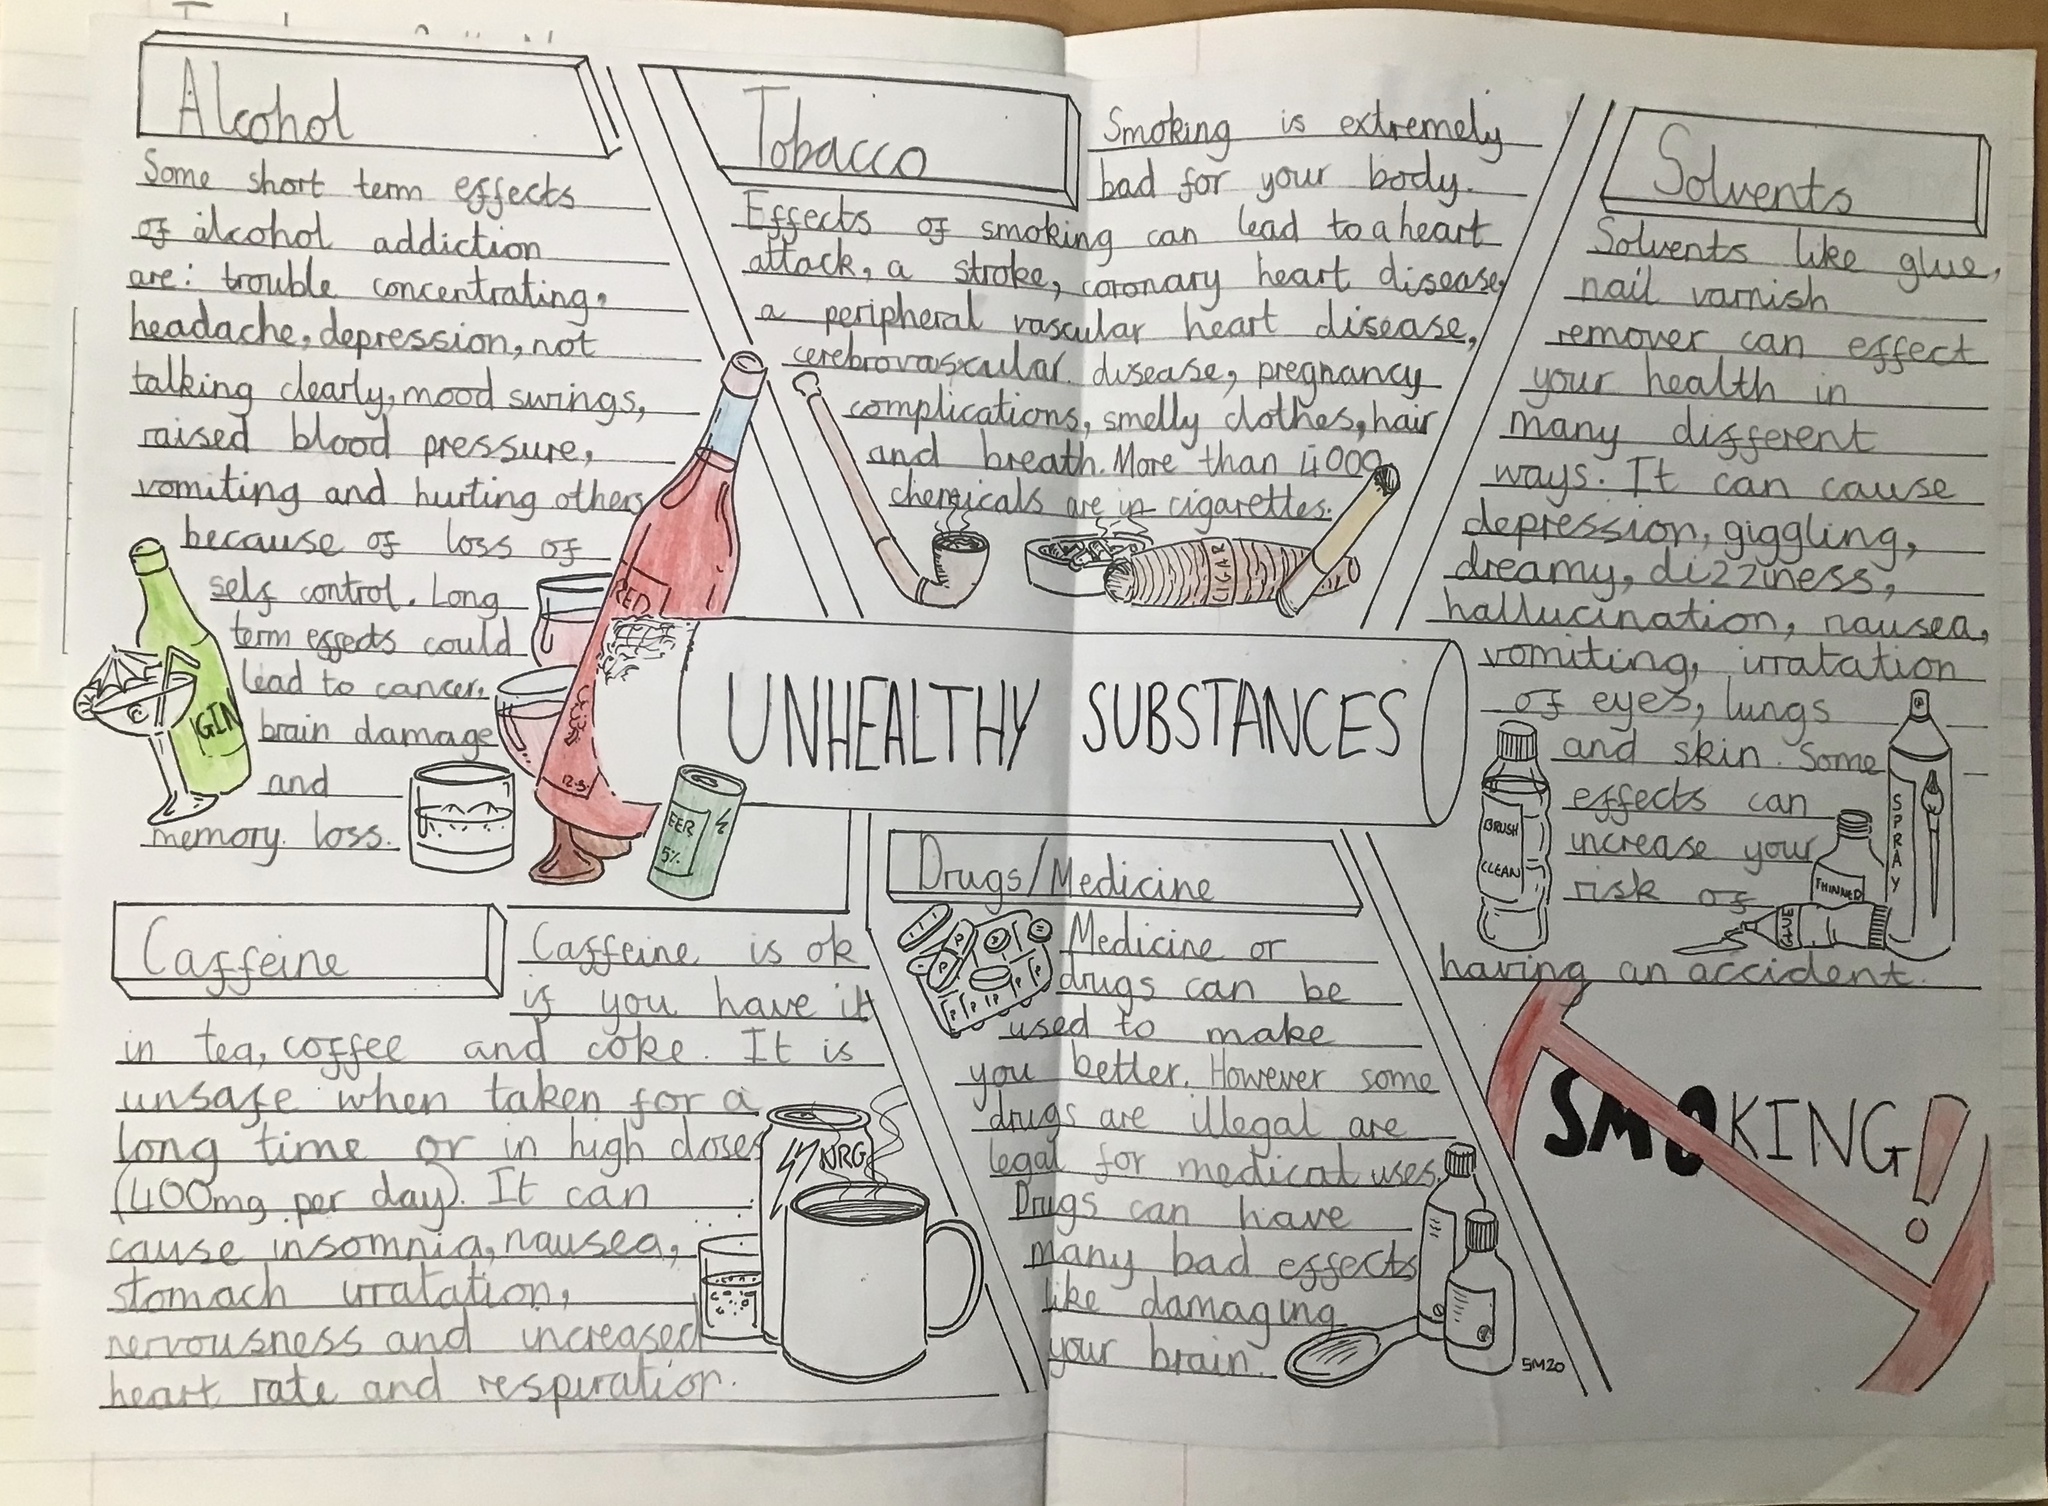 Alcohol
Some short term effects
of alcohol addiction
are: trouble concentrating,
headache, depression, not
talking clearly, mood swings,
raised blood pressure,
vomiting and hurting others
because of loss of
self control. Long
term effects could
lead to cancer,
brain damage
and
memory loss.
GIN
RED
12.5
BEER
5%
Tobacco
Smoking is extremely
bad for your body.
Effects of smoking can lead to a heart
attack, a stroke, coronary heart disease,
a peripheral vascular heart disease,
cerebrovascular disease, pregnancy
complications, smelly clothes, hair
and breath. More than 4000
chemicals are in cigarettes.
CIGAR
Solvents
Solvents like glue,
nail varnish
remover can effect
your health in
many different
ways. It can cause
depression, giggling,
dreamy, dizziness,
hallucination, nausea,
vomiting, irratation
of eyes, lungs
and skin. Some
effects can
increase your
risk of
having an accident.
BRUSH
CLEAN
THINNER
GLUE
SPRAY
UNHEALTHY SUBSTANCES
Caffeine
Caffeine is ok
if you have it
in tea, coffee and coke. It is
unsafe when taken for a
long time or in high doses
(400mg per day). It can
cause insomnia, nausea,
stomach irratation,
nervousness and increased
heart rate and respiration.
NRG
Drugs/Medicine
Medicine or
drugs can be
used to make
you better. However some
drugs are illegal are
legal for medical uses.
Drugs can have
many bad effects
like damaging
your brain.
SM20
SMOKING!